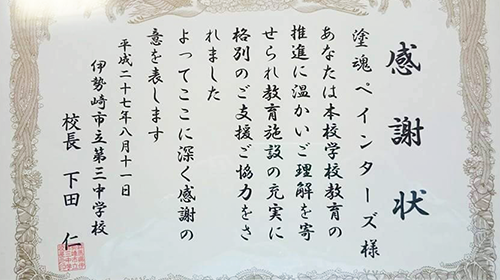 感謝状
塗魂ペインターズ様
あなたは本校学校教育の
推進に温かいご理解を寄
せられ教育施設の充実に
格別のご支援ご協力をさ
れました
よってここに深く感謝の
意を表します
平成二十七年八月十一日
伊勢崎市立第三中学校
校長 下田 仁